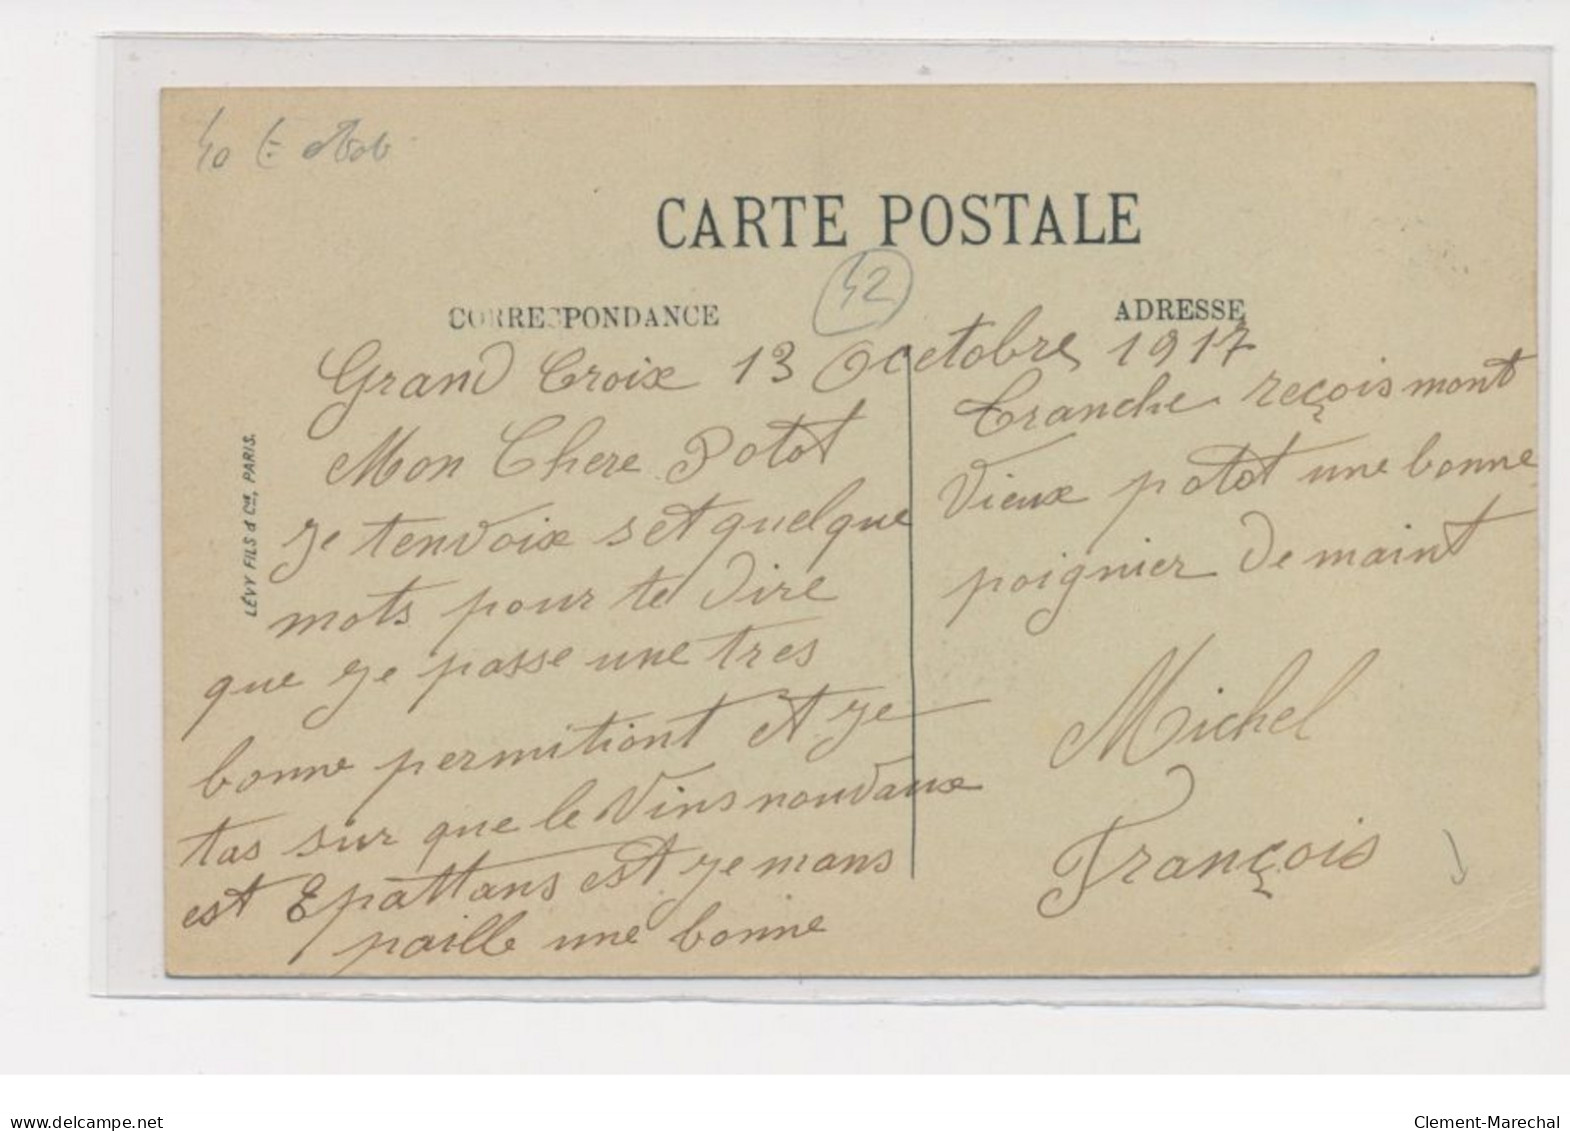 CARTE POSTALE
42
CORRESPONDANCE
ADRESSE
LÉVY FILS & Cie, PARIS.
Grand Croix 13 Octobre 1917
Mon Chere Potot
Je tenvoix set quelque
mots pour te dire
que je passe une tres
bonne permitiont et je
tas sur que le Vins nouvaux
est Epattans est je mans
paille une bonne
tranche reçois mont
Vieux potot une bonne
poignier de maint
Michel
François
www.delcampe.net
Clement-Marechal